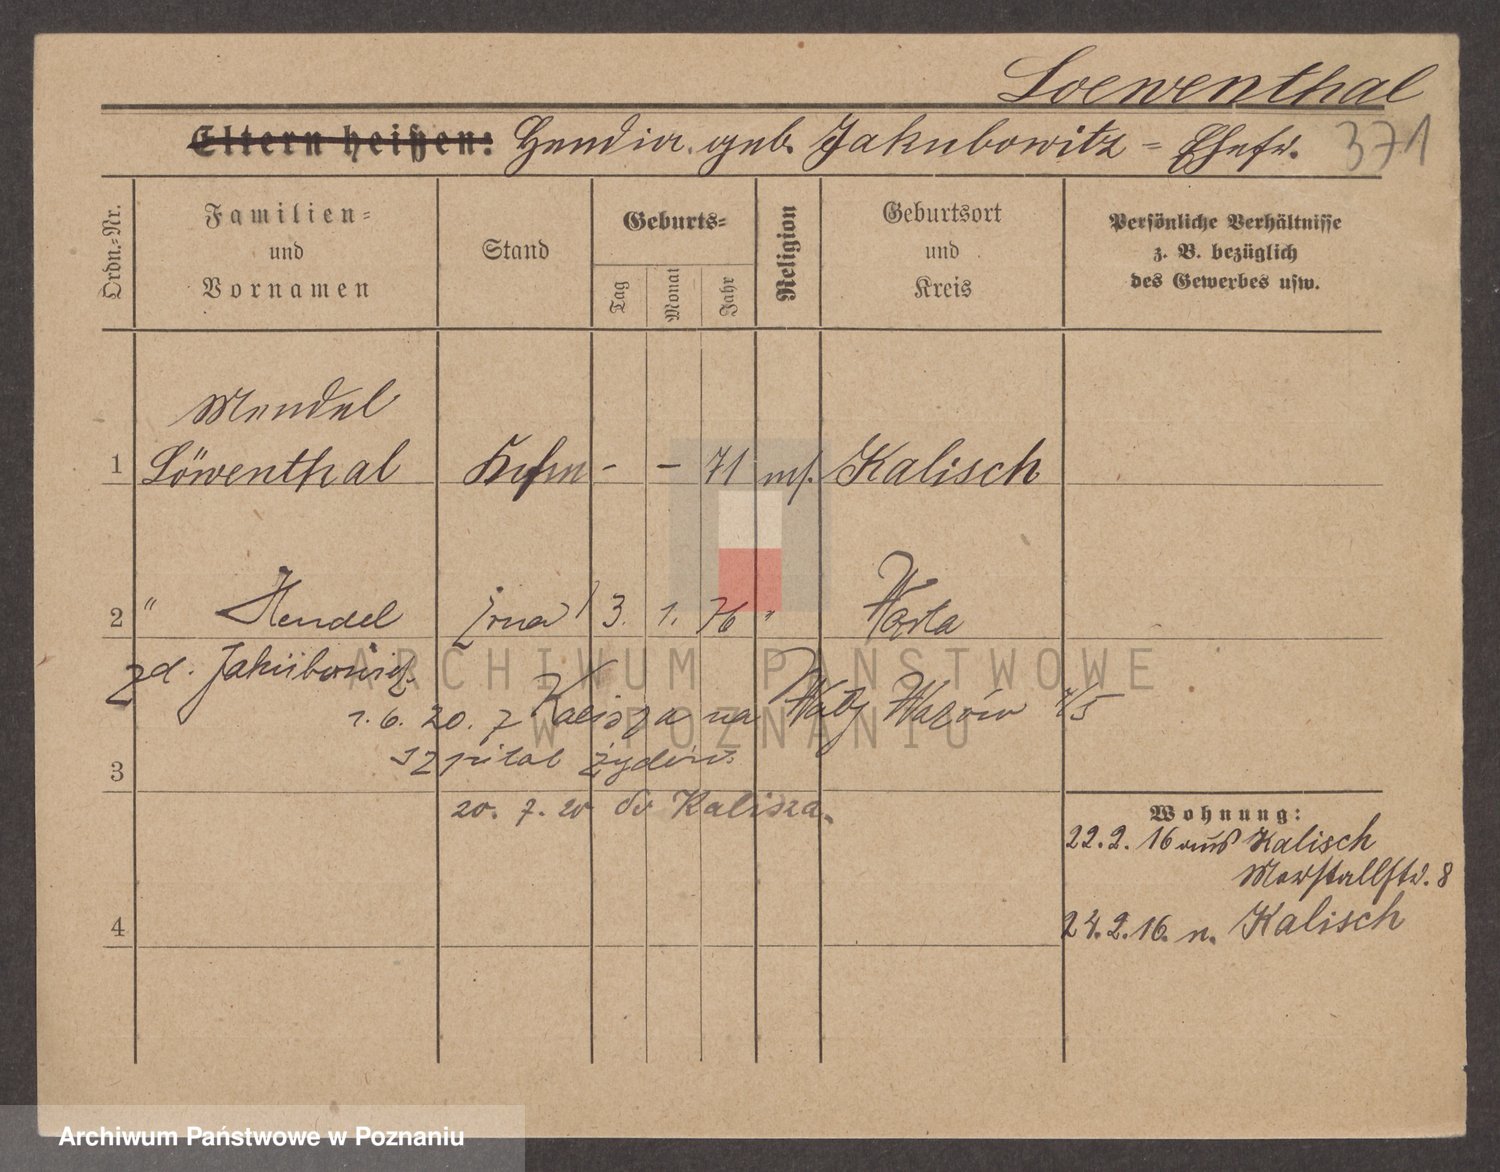 Loewenthal
Eltern heißen: Hendia geb. Jakubowitz = Ehefr. 371
Ordn.=Nr.
Familien=
und
Vornamen
Stand
Geburts=
Tag
Monat
Jahr
Religion
Geburtsort
und
Kreis
Persönliche Verhältnisse
z. B. bezüglich
des Gewerbes usw.
Mendel
1 Löwenthal Kufm - - 71 mos. Kalisch
2 " Hendel żona 3. 1. 76 " Warta
zd. Jakubowicz
1.6.20. z Kalisza na Wały Wazów 4/5
szpital żydow.
3
20.7.20 do Kalisza.
Wohnung:
22.2.16 aus Kalisch
Marstallstr. 8
4
24.2.16. n. Kalisch
ARCHIWUM PAŃSTWOWE
W POZNANIU
Archiwum Państwowe w Poznaniu